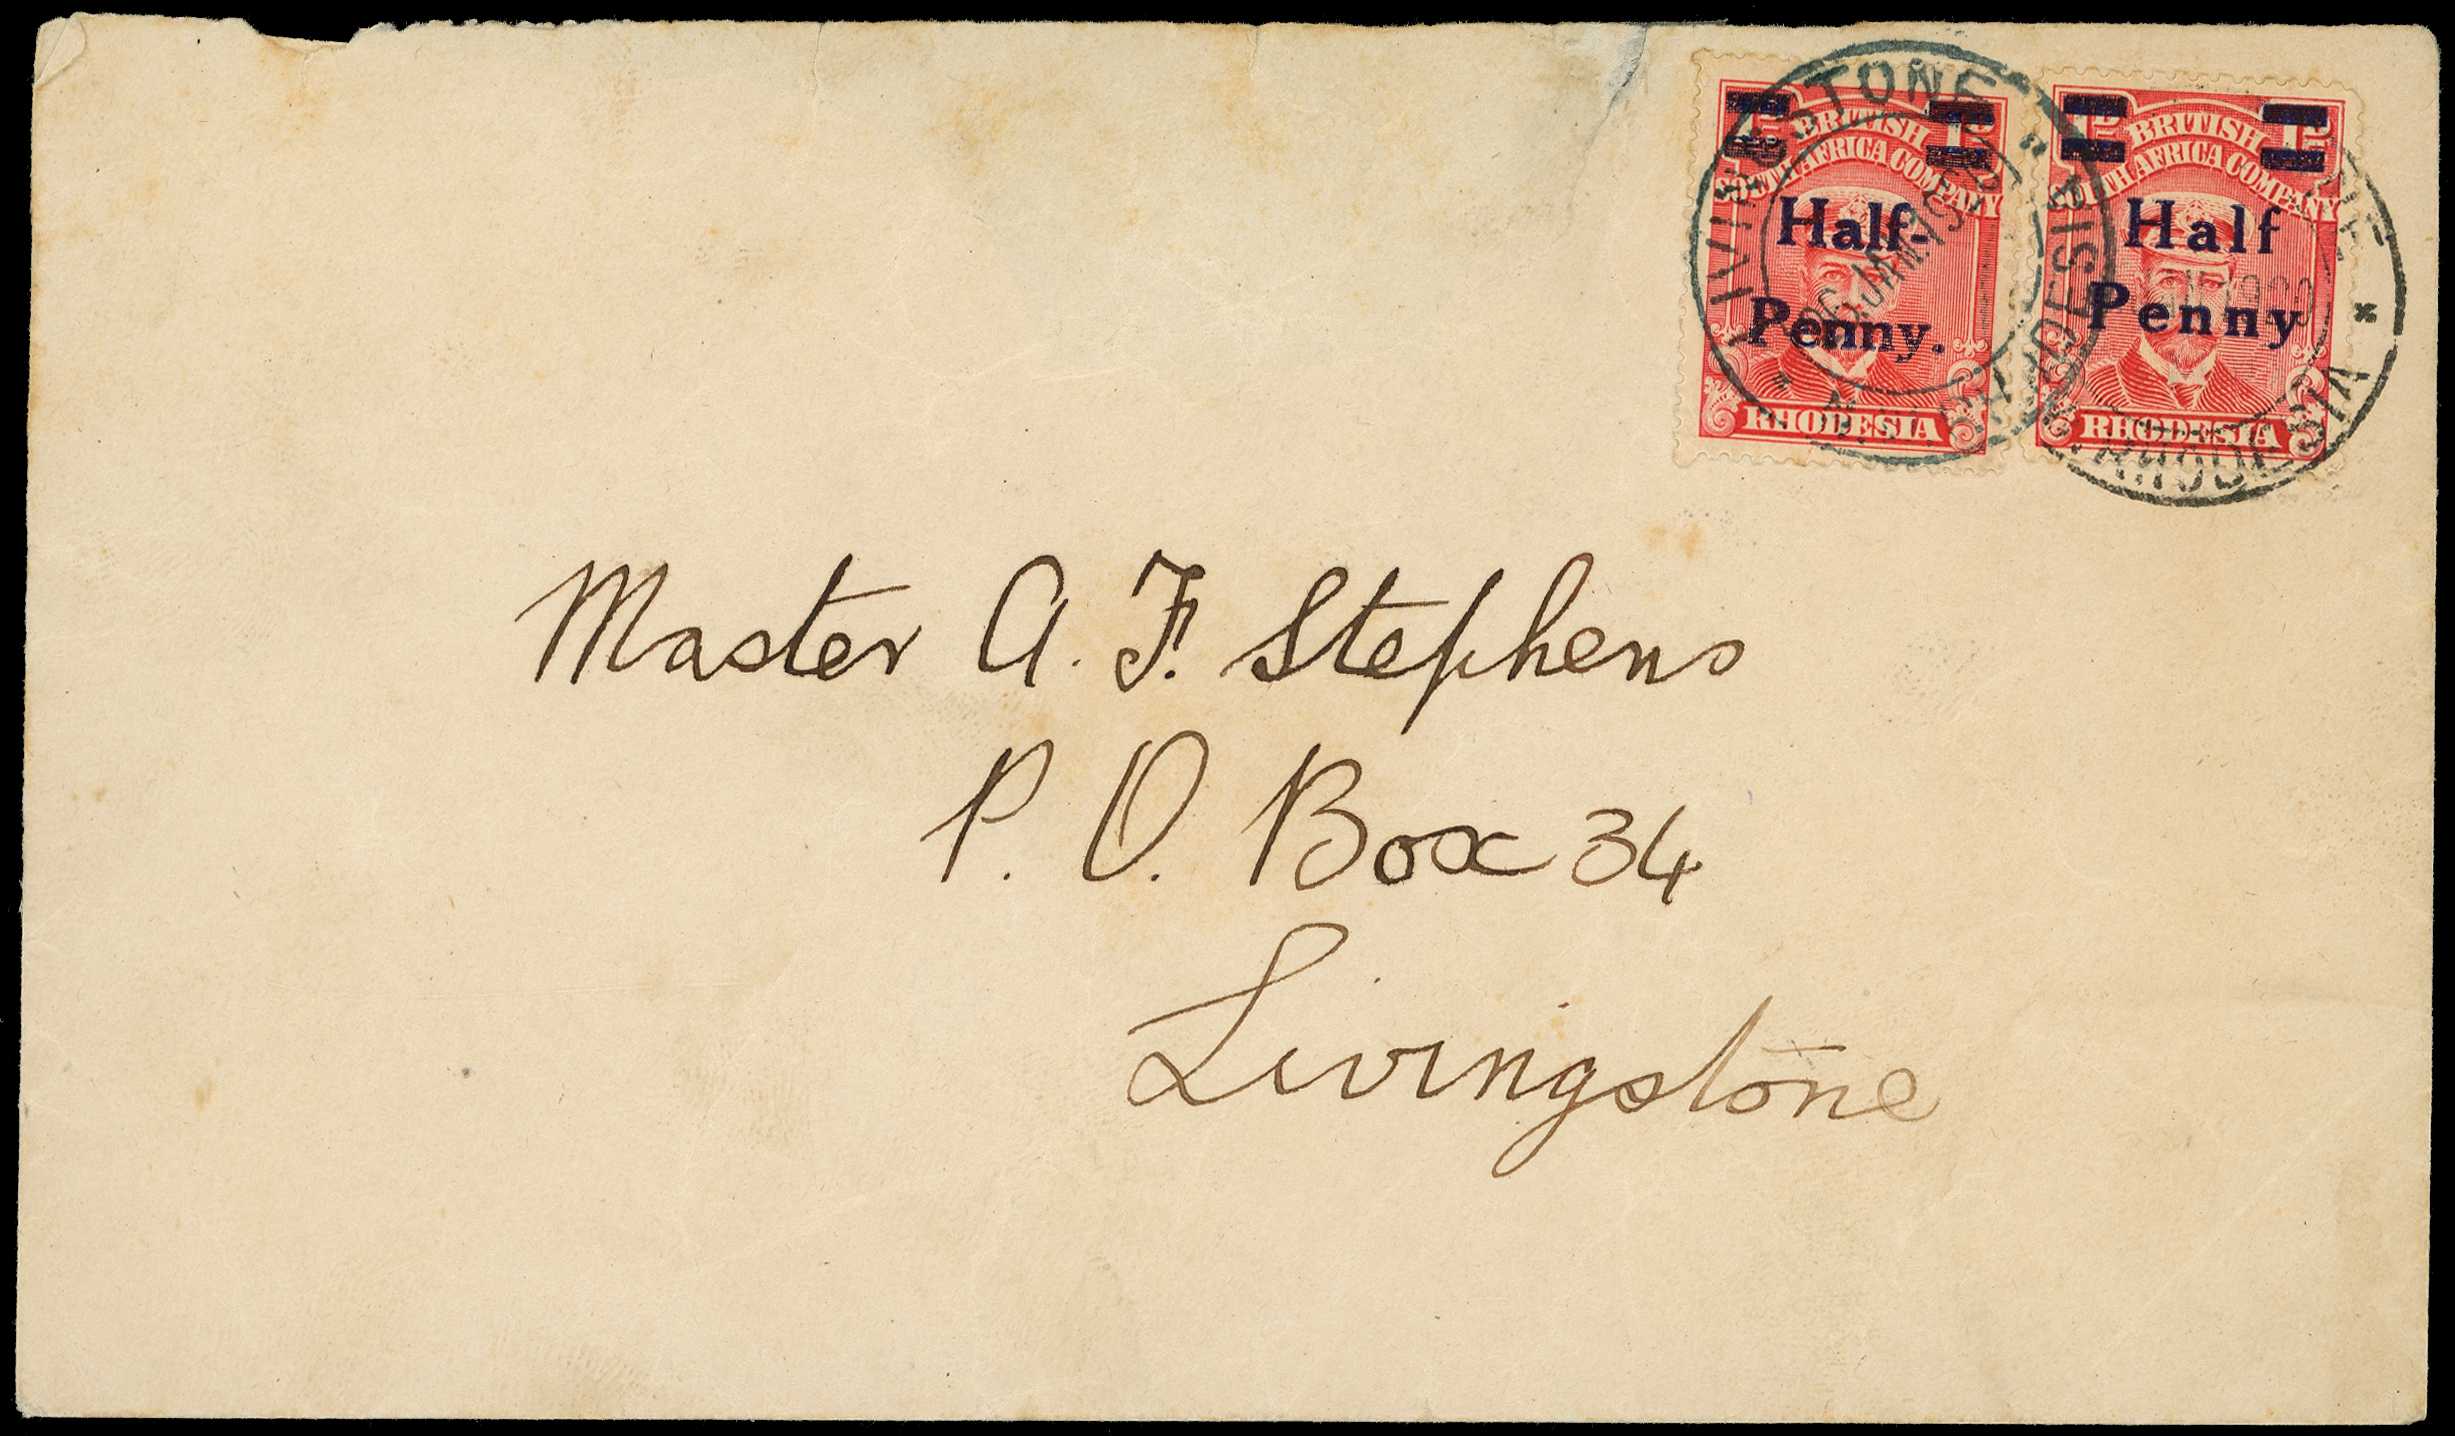 1d 1d
BRITISH
SOUTH AFRICA COMPANY
Half-
Penny.
RHODESIA
1d 1d
BRITISH
SOUTH AFRICA COMPANY
Half
Penny
RHODESIA
LIVINGSTONE
RHODESIA
RHODESIA
Master A. F. Stephens
P. O. Box 34
Livingstone